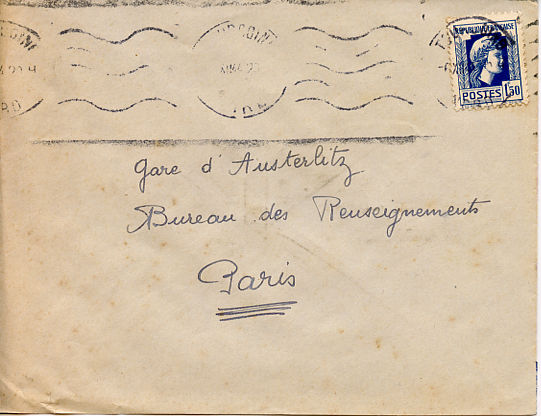 REPUBLIQUE FRANCAISE
POSTES 1F50
Gare d'Austerlitz
Bureau des Renseignements
Paris